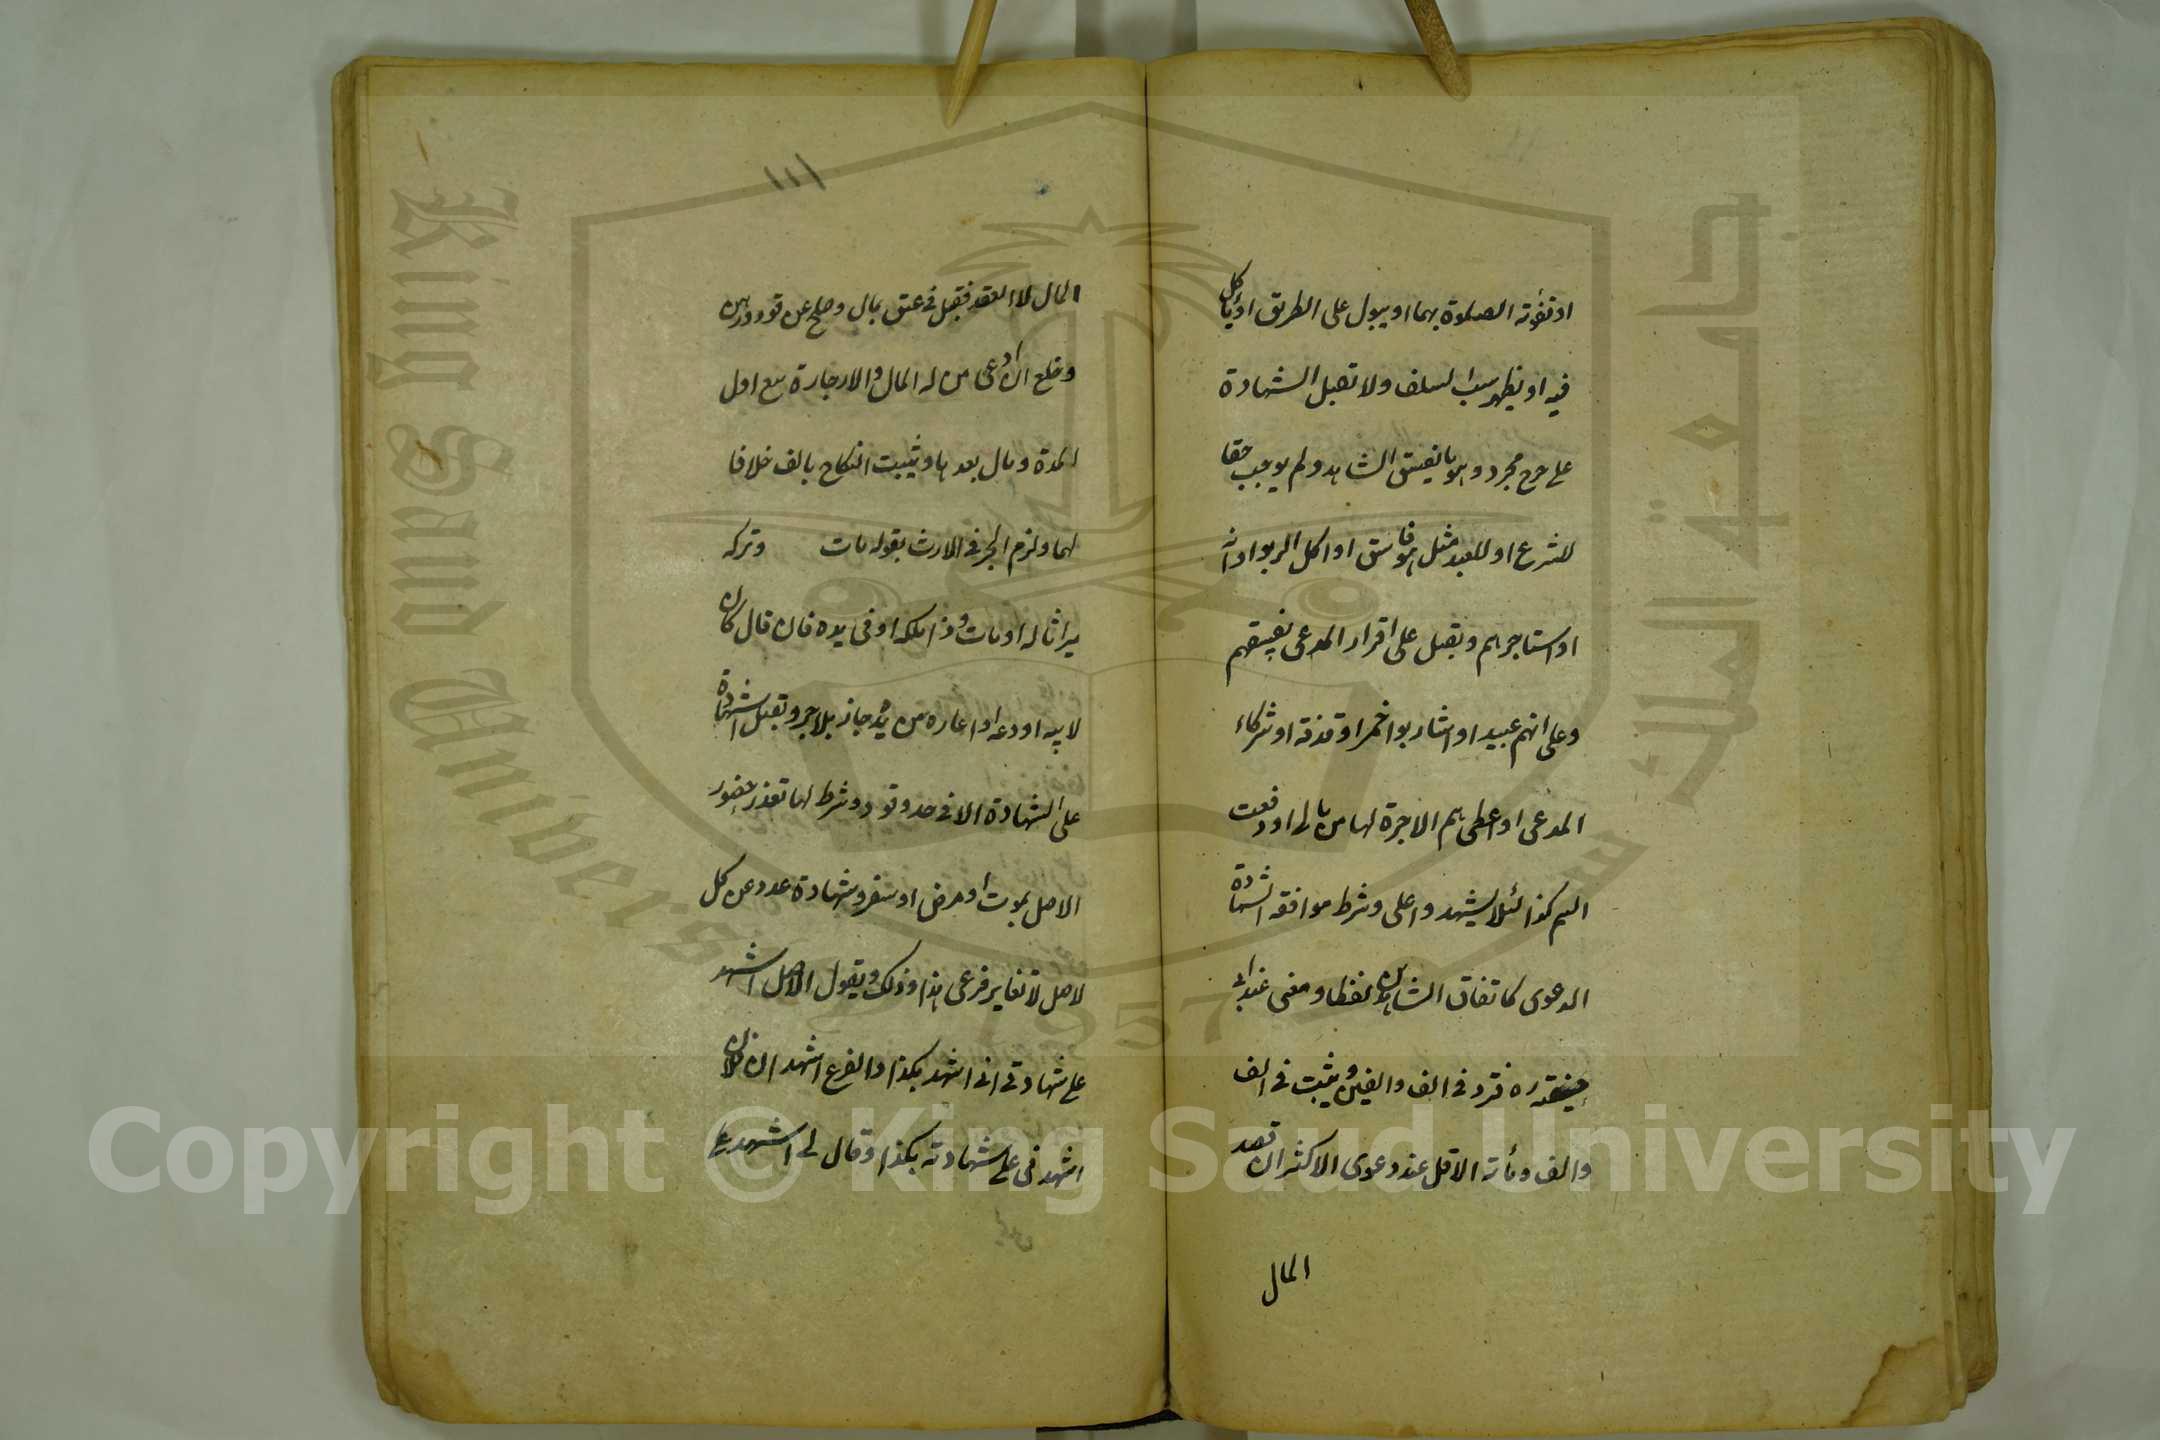 او تفوته الصلوة بهما او يبول على الطريق او يأكل
فيه او يظهر سب السلف ولا تقبل الشهادة
على جرح مجرد وهو ما يفسق الشاهد ولم يوجب حقا
للشرع او للعبد مثل هو فاسق او اكل الربوا او انه
او استاجرهم وتقبل على اقرار المدعى بفسقهم
وعلى انهم عبيد او شاربوا خمر او قذفة او شركاء
المدعى او اعطى هم الاجرة لها من مالى او دفعت
اليهم كذا لئلا يشهدوا على وشرط موافقة الشهادة
الدعوى كاتفاق الشاهدين لفظا ومعنى عند ابى
حنيفة ره فترد فى الف والفين ويثبت فى الف
والف ومأته الاقل عند دعوى الاكثر ان قصد
المال
١١١
المال لا العقد فتقبل فى عتق بمال وصلح عن قود ورهن
وخلع ان ادعى من له المال والاجارة بيع اول
المدة ومال بعدها ويثبت النكاح بالف خلافا
لهما ولزم الجر فى الارث بقوله مات وتركه
ميراثا له او مات وذا ملكه او فى يده فان قال كان
لابيه او دعه او اعاره من يده جاز بلا جر وتقبل الشهادة
على الشهادة الا فى حد وقود وشرط لها تعذر حضور
الاصل بموت او مرض او سفر وشهادة عدد عن كل
اصل لا تغاير فرعى هذا وذلك ويقول الاصل اشهد
على شهادتى انى اشهد بكذا والفرع اشهد ان فلان
اشهدنى على شهادته بكذا وقال لى اشهد على
Copyright © King Saud University
King Saud University
جامعة الملك سعود
1957